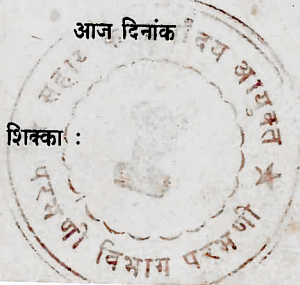 आज दिनांक
शिक्का :
आयुक्त
परभणी विभाग परभणी